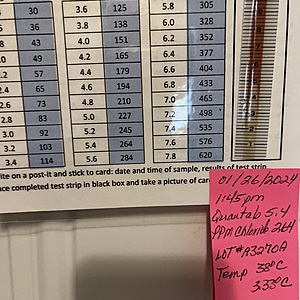 30 3.6 125 5.8 305
36 3.8 138 6.0 328
8 43 4.0 151 6.2 352
.0 49 4.2 165 6.4 377
.2 57 4.4 179 6.6 404
2.4 65 4.6 194 6.8 433
2.6 73 4.8 210 7.0 465
2.8 83 5.0 227 7.2 498
3.0 92 5.2 245 7.4 535
3.2 103 5.4 264 7.6 576
3.4 114 5.6 284 7.8 620
ite on a post-it and stick to card: date and time of sample, results of test strip
ace completed test strip in black box and take a picture of car
01/26/2024
1145pm
Quantab 5.4
PPM Chloride 264
LOT # A3270A
Temp 38°C
3.33°C